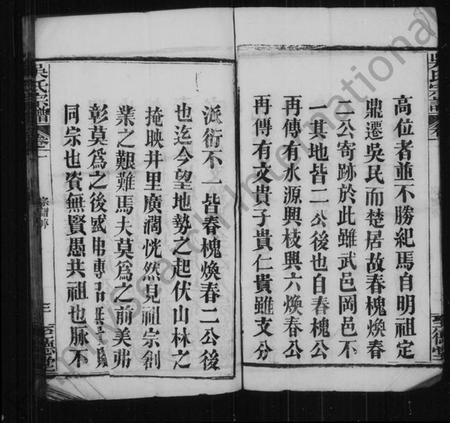 高位者並不勝紀焉自明祖定
鼎遷吳民而楚居故春槐煥春
二公寄跡於此雖武邑岡邑不
一其地皆二公後也自春槐公
再傳有水源興枝興六煥春公
再傳有文貴子貴仁貴雖支分
派衍不一皆春槐煥春二公後
也迄今望地勢之起伏山林之
掩映井里廣濶恍然見祖宗創
業之艱難焉夫莫為之前美弗
彰莫為之後盛弗傳
同宗也資無賢愚共祖也脉不
吳氏宗譜
卷二